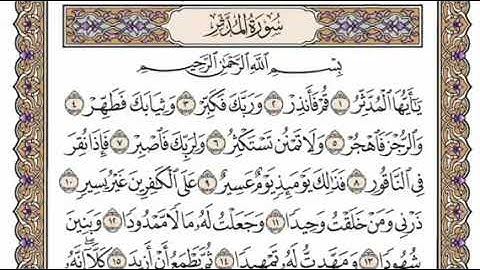 سُورَةُ الْمُدَّثِّرِ
بِسْمِ اللَّهِ الرَّحْمَٰنِ الرَّحِيمِ
يَا أَيُّهَا الْمُدَّثِّرُ ١ قُمْ فَأَنذِرْ ٢ وَرَبَّكَ فَكَبِّرْ ٣ وَثِيَابَكَ فَطَهِّرْ ٤
وَالرُّجْزَ فَاهْجُرْ ٥ وَلَا تَمْنُن تَسْتَكْثِرُ ٦ وَلِرَبِّكَ فَاصْبِرْ ٧ فَإِذَا نُقِرَ
فِي النَّاقُورِ ٨ فَذَٰلِكَ يَوْمَئِذٍ يَوْمٌ عَسِيرٌ ٩ عَلَى الْكَافِرِينَ غَيْرُ يَسِيرٍ ١٠
ذَرْنِي وَمَنْ خَلَقْتُ وَحِيدًا ١١ وَجَعَلْتُ لَهُ مَالًا مَّمْدُودًا ١٢ وَبَنِينَ
شُهُودًا ١٣ وَمَهَّدتُّ لَهُ تَمْهِيدًا ١٤ ثُمَّ يَطْمَعُ أَنْ أَزِيدَ ١٥ كَلَّا إِنَّهُ